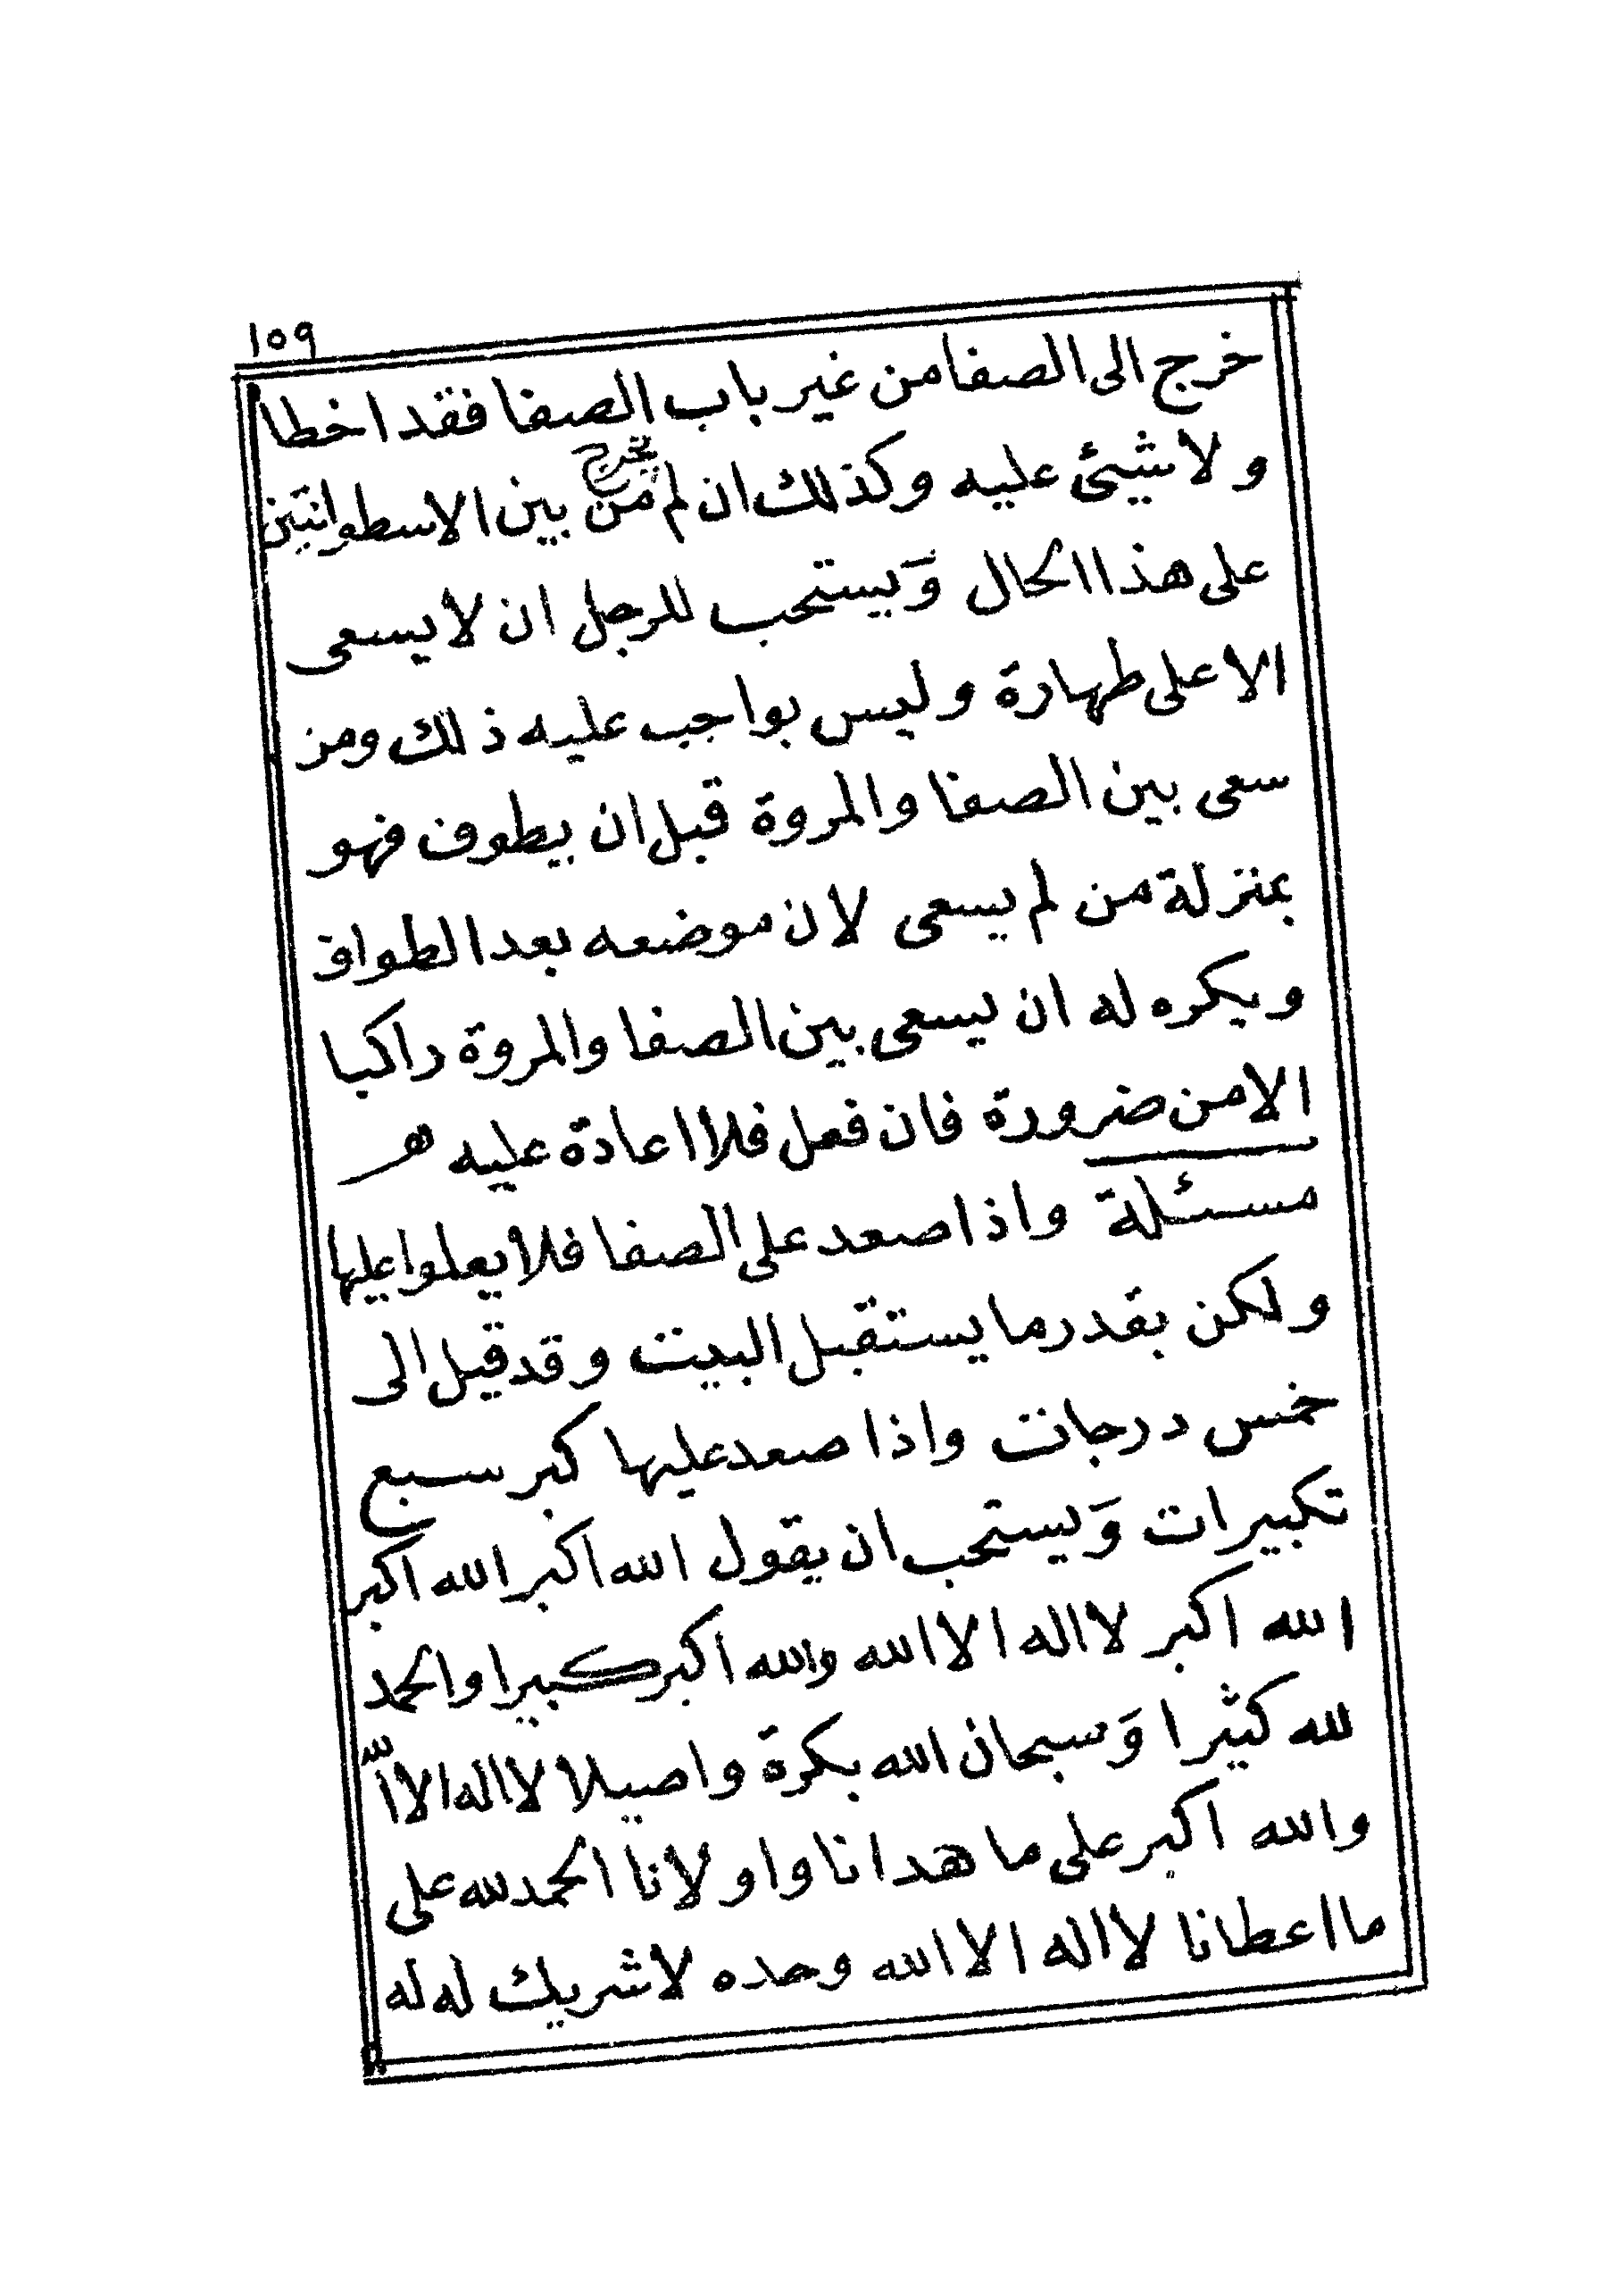 ١٥٩
خرج الى الصفا من غير باب الصفا فقد اخطا
و لا شيئ عليه وكذلك ان لم يخرج من بين الاسطوانتين
على هذا الحال وَيستحب للرجل ان لا يسعى
الا على طهارة وليس بواجب عليه ذلك ومن
سعى بين الصفا والمروة قبل ان يطوف فهو
بمنزلة من لم يسعى لان موضعه بعد الطواف
ويكره له ان يسعى بين الصفا والمروة راكبا
الا من ضرورة فان فعل فلا اعادة عليه هـ
مسئلة واذا صعد على الصفا فلا يعلوا عليها
ولكن بقدر ما يستقبل البيت وقد قيل الى
خمس درجات واذا صعد عليها كبر سبع
تكبيرات وَيستحب ان يقول الله اكبر الله اكبر
الله اكبر لا اله الا الله والله اكبر كبيرا والحمد
لله كثيرا وَسبحان الله بكرة واصيلا لا اله الا اللّه
والله اكبر على ما هدانا واولانا الحمد لله على
ما اعطانا لا اله الا الله وحده لا شريك له له